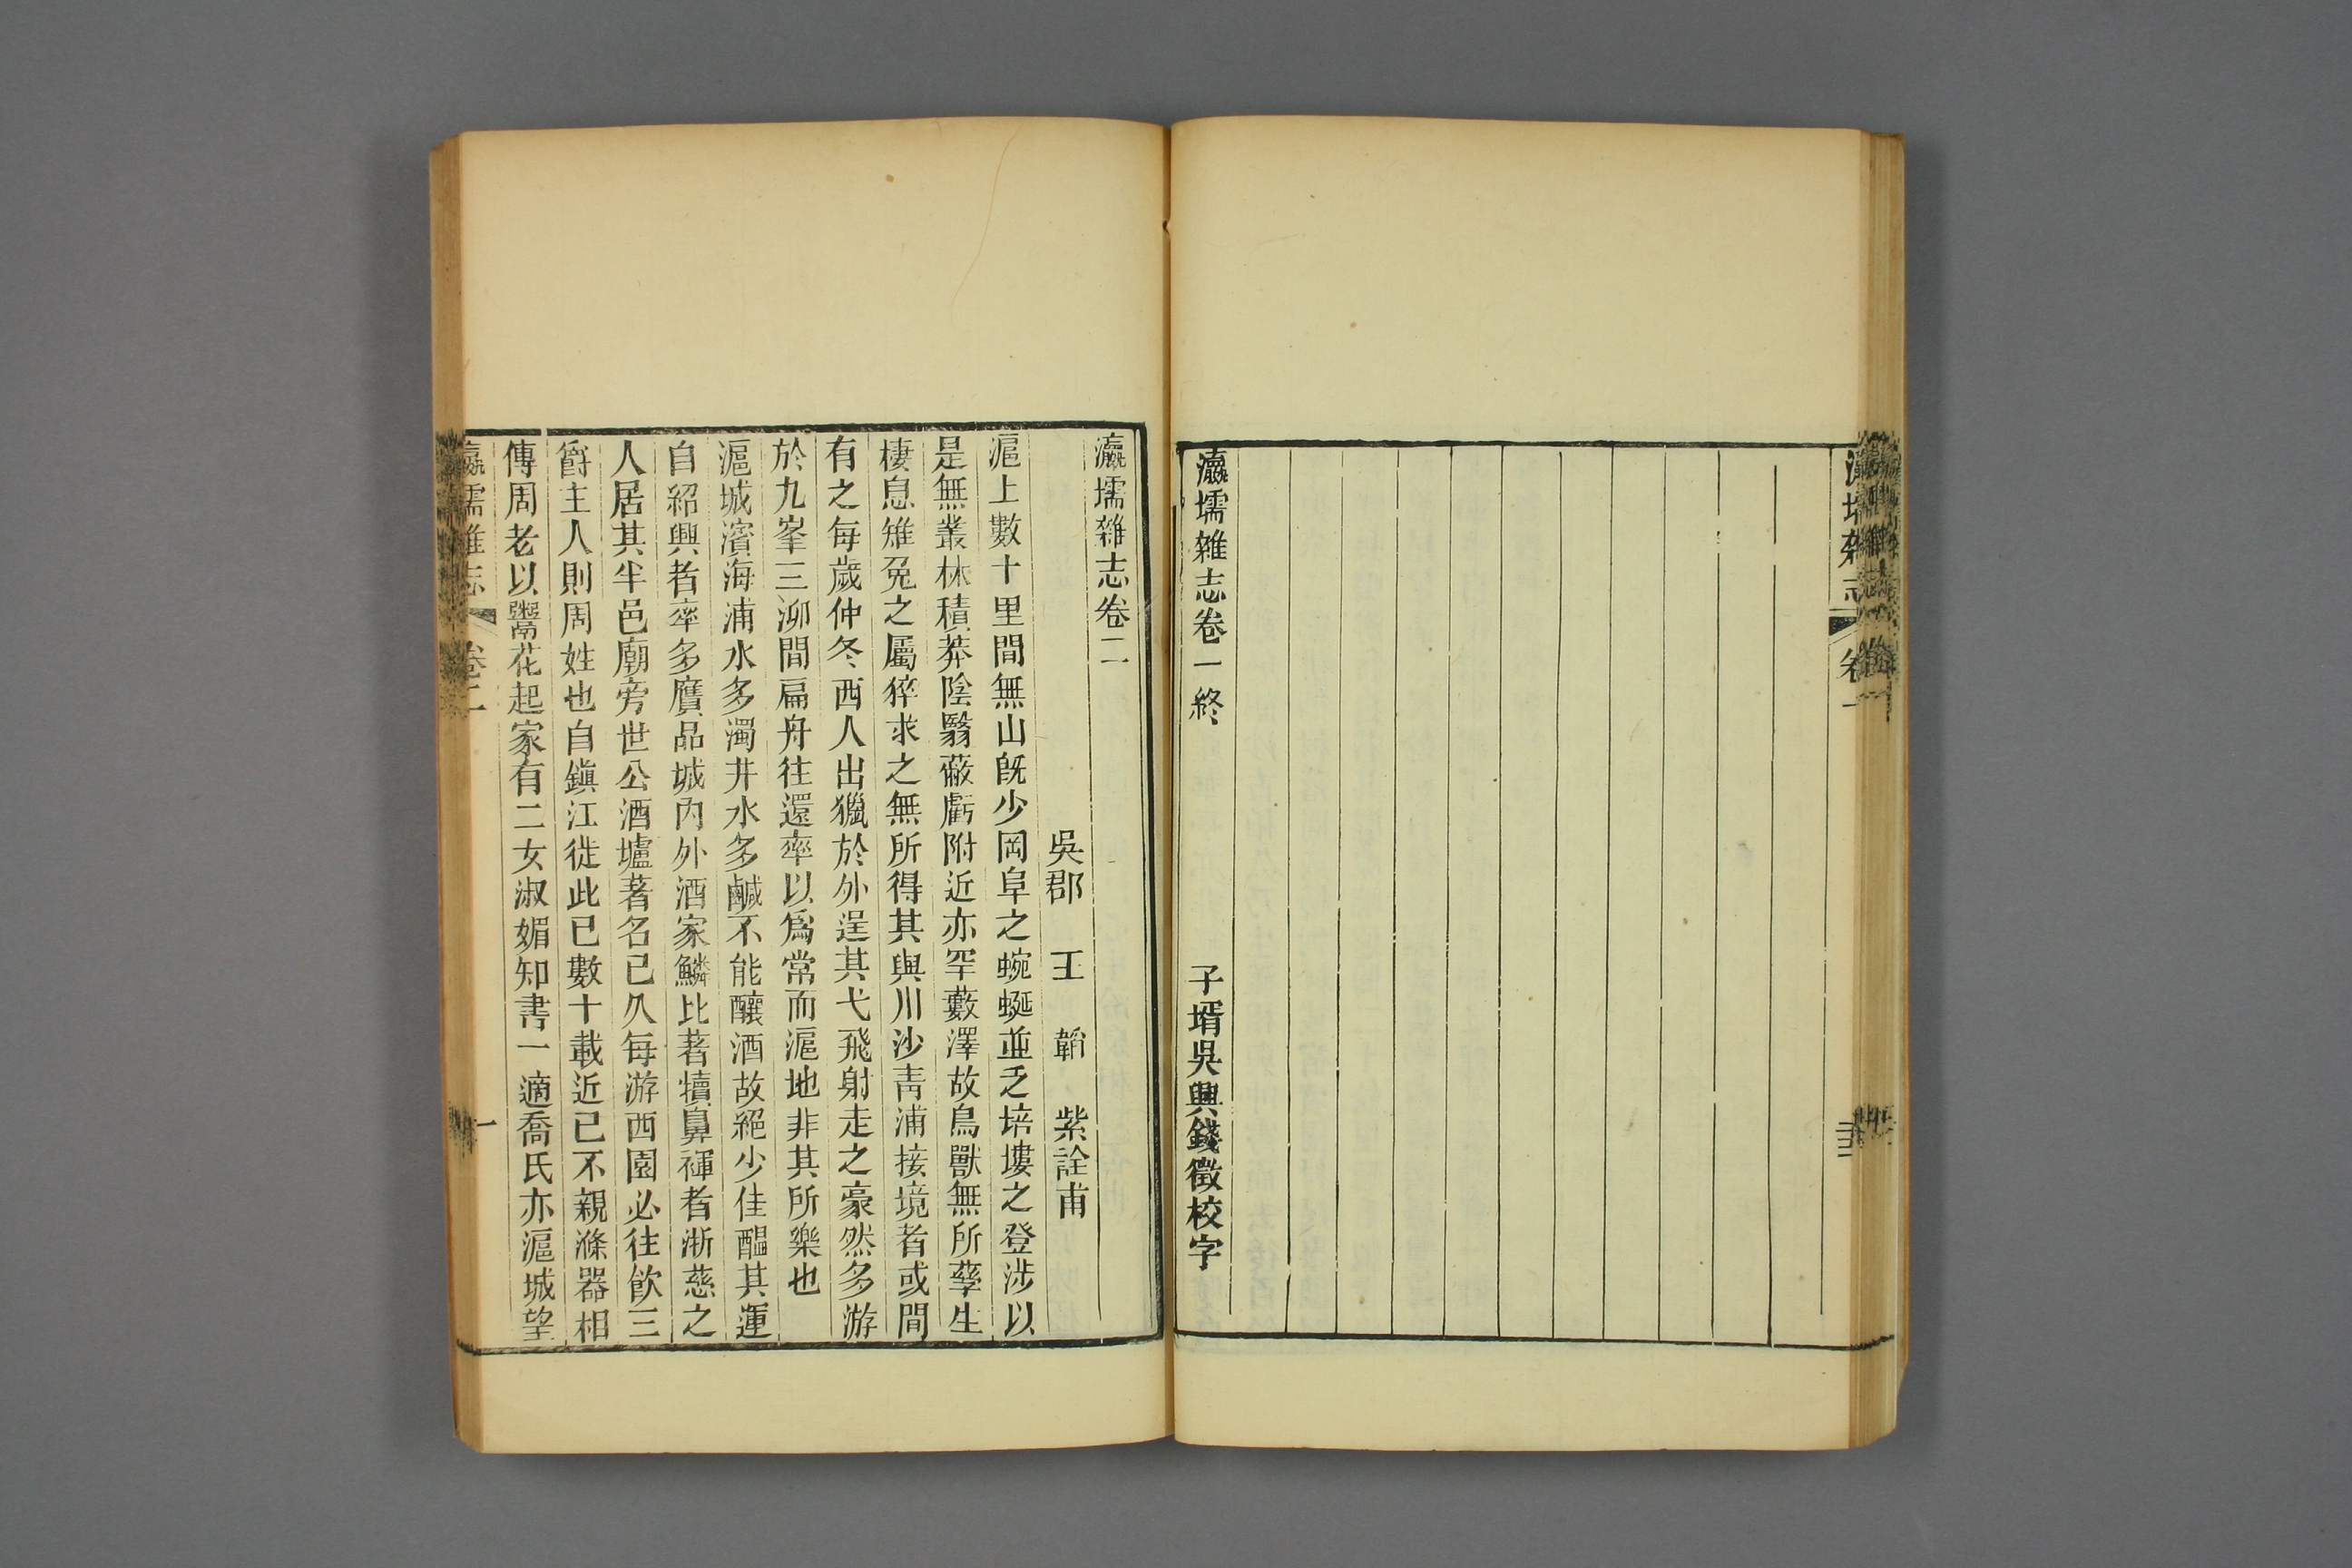 瀛壖雜志 卷一 三三
瀛壖雜志卷一終 子壻吳興錢徵校字
瀛壖雜志卷二
吳郡 王 韜 紫詮甫
滬上數十里間無山旣少岡阜之蜿蜒並乏培塿之登涉以
是無叢林積莽陰翳蔽虧附近亦罕藪澤故鳥獸無所孳生
棲息雉兔之屬猝求之無所得其與川沙靑浦接境者或間
有之每歲仲冬西人出獵於外逞其弋飛射走之豪然多游
於九峯三泖間扁舟往還率以爲常而滬地非其所樂也
滬城濱海浦水多濁井水多鹹不能釀酒故絕少佳醞其運
自紹興者率多贋品城內外酒家鱗比著犢鼻褌者浙慈之
人居其半邑廟旁世公酒壚著名已久每游西園必往飮三
爵主人則周姓也自鎭江徙此已數十載近已不親滌器相
傳周老以鬻花起家有二女淑媚知書一適喬氏亦滬城望
瀛壖雜志 卷二 一